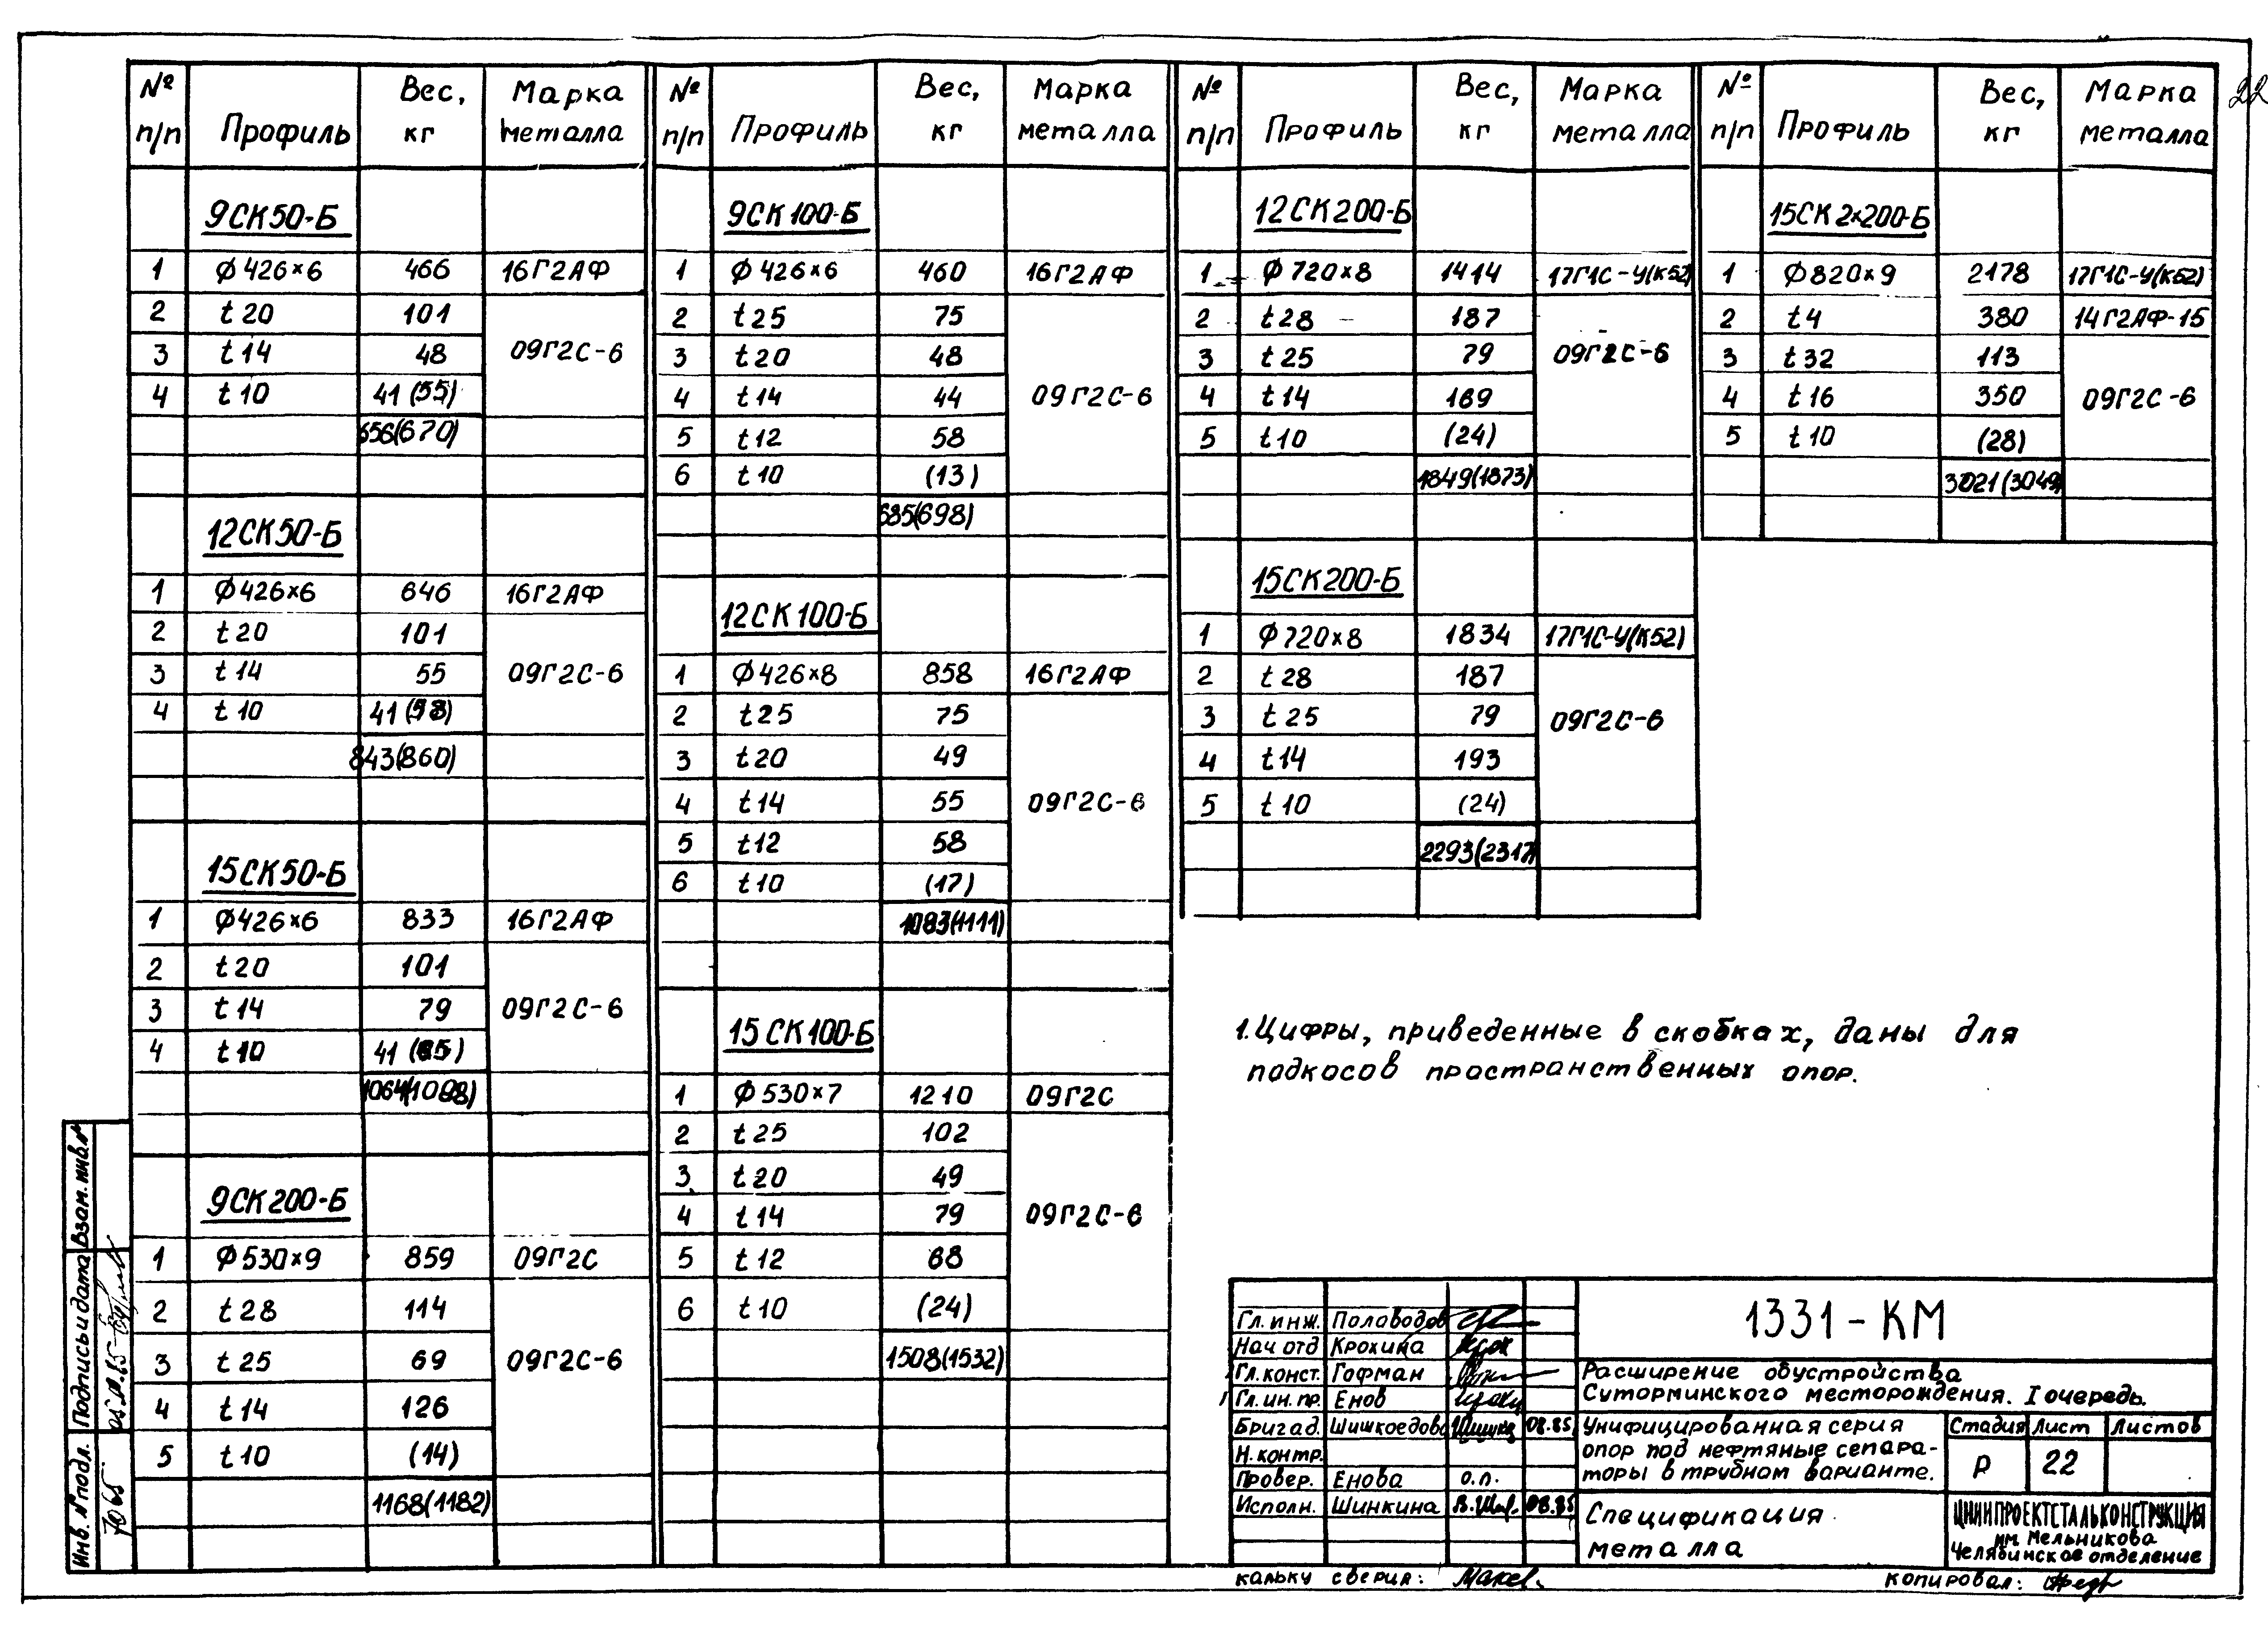 22
№ п/п Профиль Вес, кг Марка металла
9СК50-Б
1 Ø426×6 466 16Г2АФ
2 t20 101
3 t14 48 09Г2С-6
4 t10 41(55)
656(670)
12СК50-Б
1 Ø426×6 646 16Г2АФ
2 t20 101
3 t14 55 09Г2С-6
4 t10 41(58)
843(860)
15СК50-Б
1 Ø426×6 833 16Г2АФ
2 t20 101
3 t14 79 09Г2С-6
4 t10 41
9СК200-Б
1 Ø530×9 859 09Г2С
2 t28 114
3 t25 69 09Г2С-6
4 t14 126
5 t10 (14)
1168(1182)
№ п/п Профиль Вес, кг Марка металла
9СК100-Б
1 Ø426×6 460 16Г2АФ
2 t25 75
3 t20 48
4 t14 44 09Г2С-6
5 t12 58
6 t10 (13)
685(698)
12СК100-Б
1 Ø426×8 858 16Г2АФ
2 t25 75
3 t20 49
4 t14 55 09Г2С-6
5 t12 58
6 t10 (17)
1083(1111)
15СК100-Б
1 Ø530×7 1210 09Г2С
2 t25 102
3 t20 49
4 t14 79 09Г2С-6
5 t12 68
6 t10 (24)
1508(1532)
№ п/п Профиль Вес, кг Марка металла
12СК200-Б
1 Ø720×8 1414 17Г1С-У(К52)
2 t28 187
3 t25 79 09Г2С-6
4 t14 169
5 t10 (24)
1849(1873)
15СК200-Б
1 Ø720×8 1834 17Г1С-У(К52)
2 t28 187
3 t25 79 09Г2С-6
4 t14 193
5 t10 (24)
2293(2317)
№ п/п Профиль Вес, кг Марка металла
15СК2×200-Б
1 Ø820×9 2178 17Г1С-У(К52)
2 t4 380 14Г2АФ-15
3 t32 113
4 t16 350 09Г2С-6
5 t10 (28)
3021(3049)
1. Цифры, приведенные в скобках, даны для
подкосов пространственных опор.
Взам. инв. №
Подпись и дата
Инв. № подл.
7065
Гл. инж. Половодов
Нач отд Крохина
Гл. конст. Гофман
Гл. ин. пр. Енов
Бригад. Шишкоедова 08.85
Н. контр.
Провер. Енова о.п.
Исполн. Шинкина 08.85
1331-КМ
Расширение обустройства
Суторминского месторождения. I очередь.
Унифицированная серия
опор под нефтяные сепара-
торы в трубном варианте.
Стадия Лист Листов
Р 22
Спецификация
металла
ЦНИИПРОЕКТСТАЛЬКОНСТРУКЦИЯ
им Мельникова
Челябинское отделение
кальку сверил:
копировал: